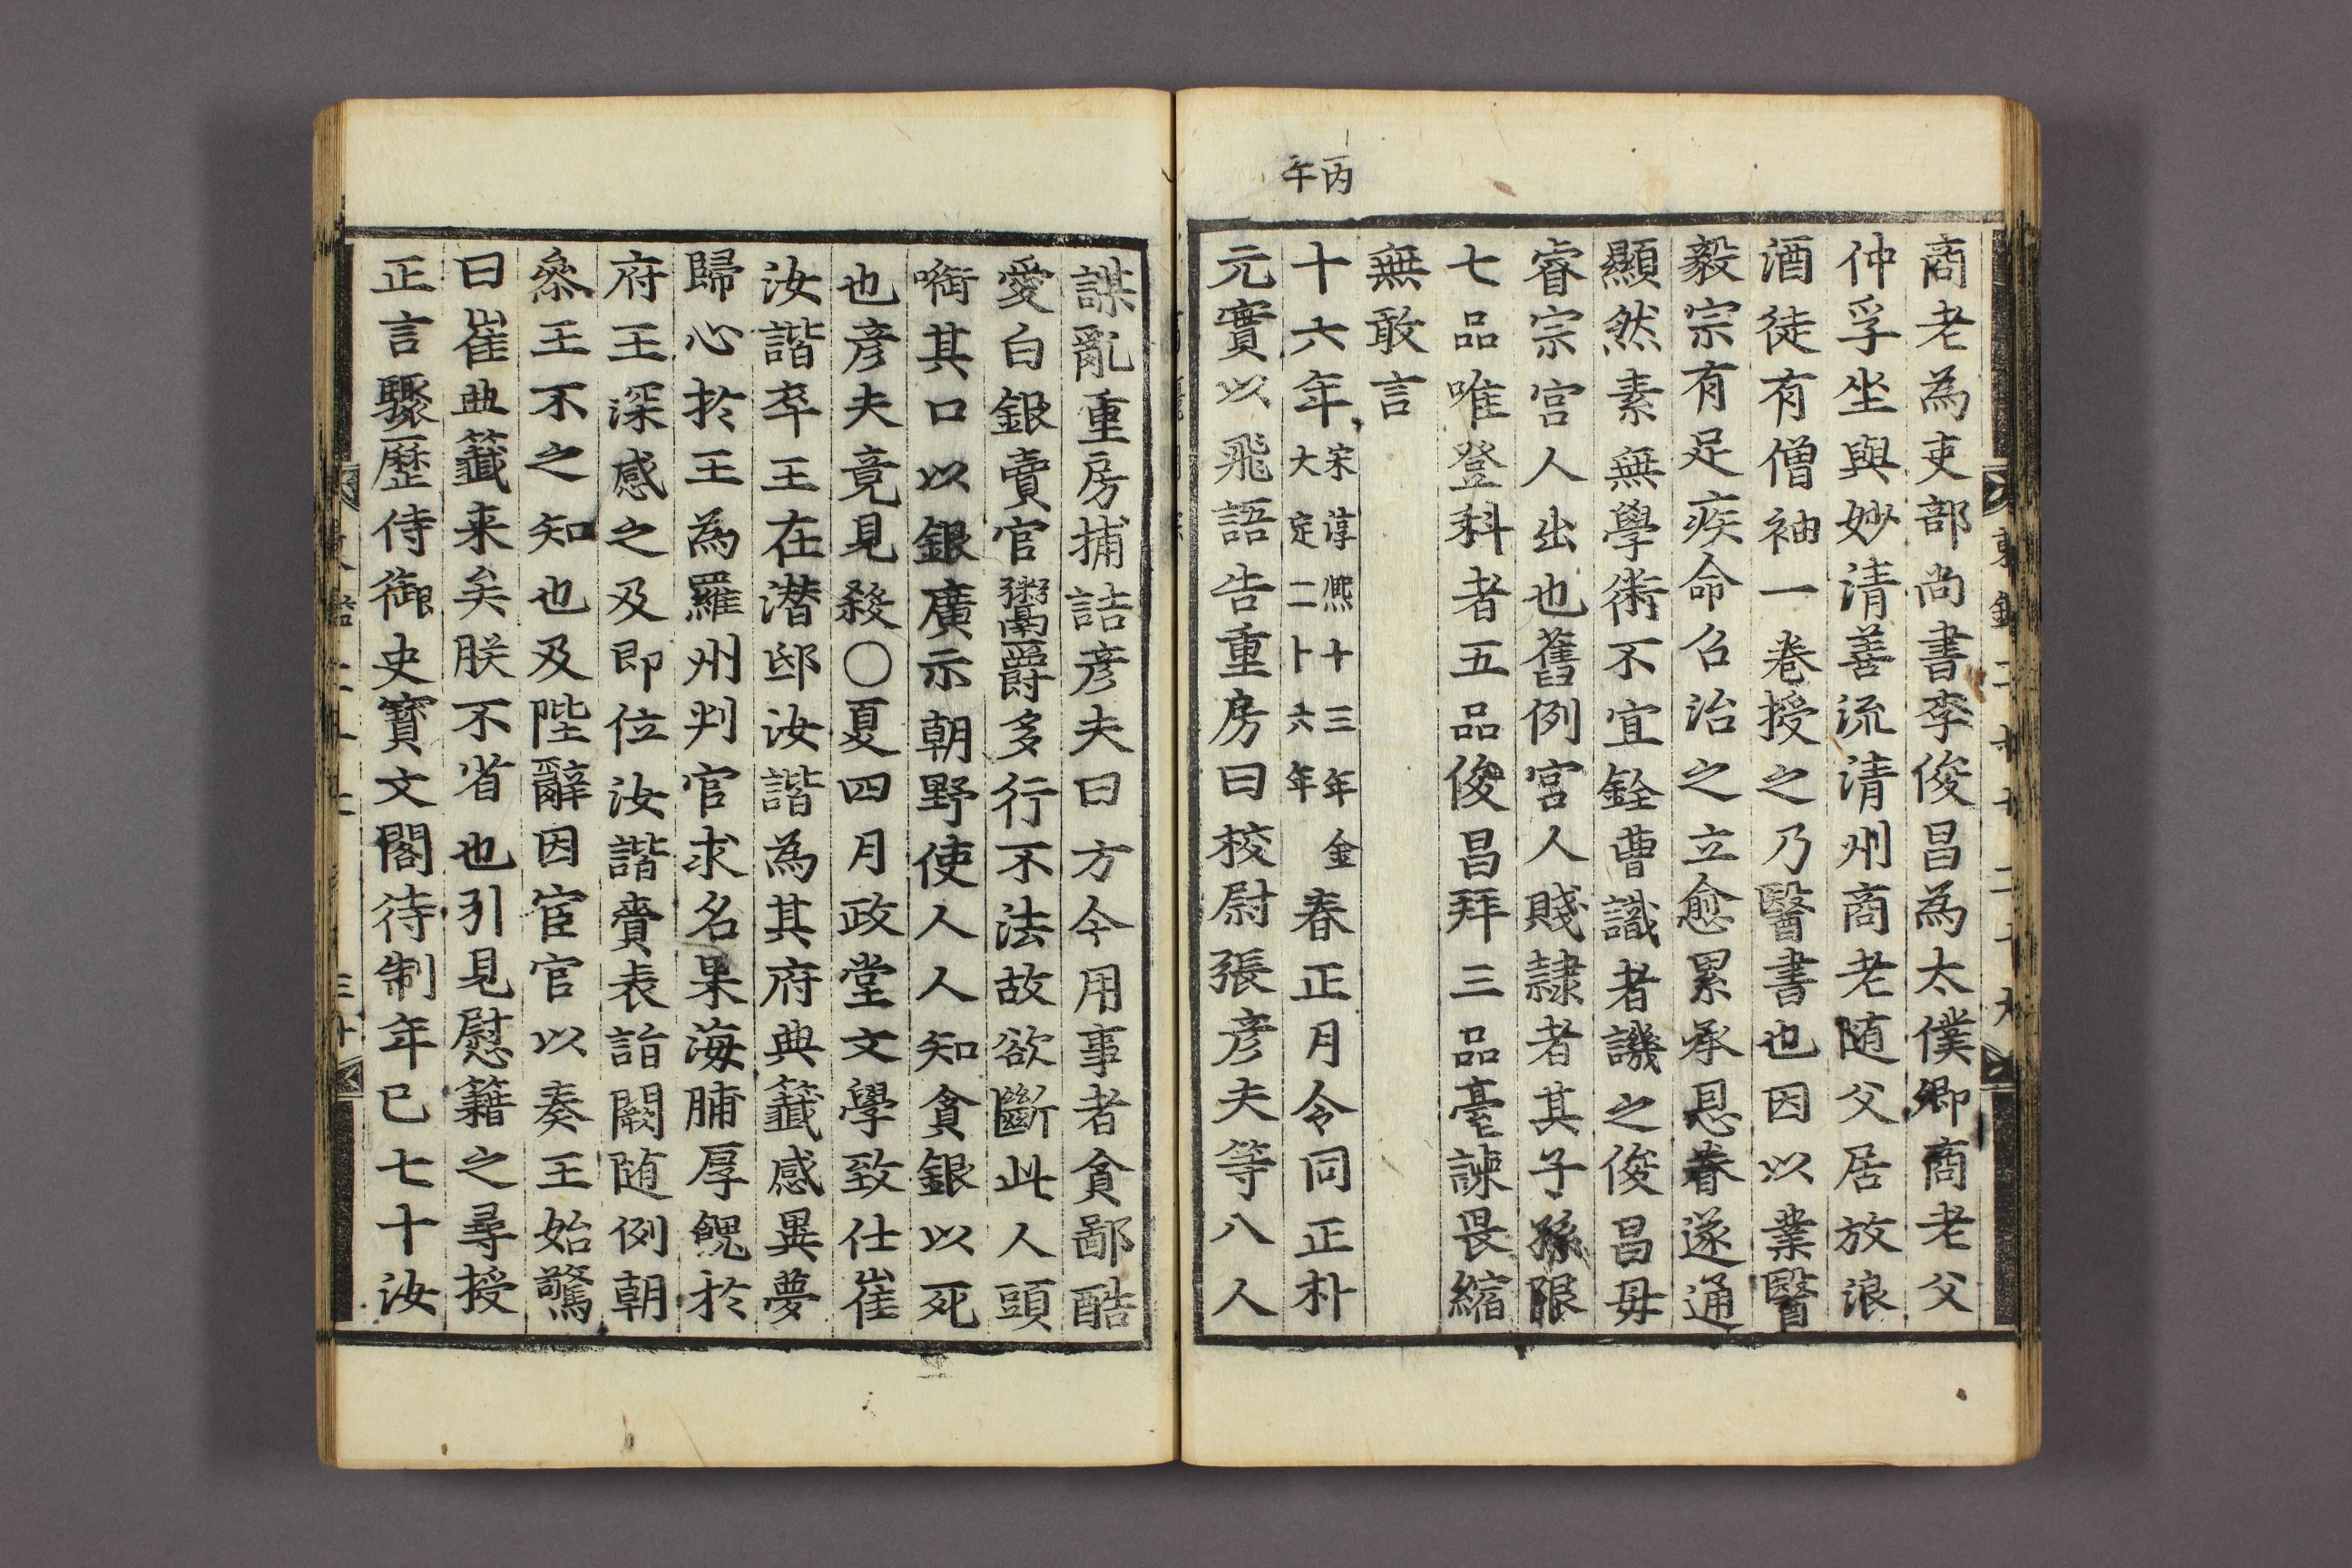 商老為吏部尙書李俊昌為太僕卿商老父
仲孚坐與妙清善流清州商老随父居放浪
酒徒有僧袖一卷授之乃醫書也因以業醫
毅宗有足疾命召治之立愈累承恩眷遂通
顯然素無學術不宜銓曹識者譏之俊昌毋
睿宗宮人出也舊例宮人賤隷者其子孫限
七品唯登科者五品俊昌拜三品䑓諫畏縮
無敢言
丙午
十六年宋淳熈十三年金大定二十六年春正月令同正朴
元實以飛語告重房曰校尉張彦夫等八人
謀亂重房捕詰彦夫曰方今用事者貪鄙酷
愛白銀賣官鬻爵多行不法故欲斷此人頭
㗸其口以銀廣示朝野使人人知貪銀以死
也彦夫竟見殺〇夏四月政堂文學致仕崔
汝諧卒王在潜邸汝諧為其府典籖感異夢
歸心扵王為羅州判官求名果海脯厚餽扵
府王深感之及即位汝諧賫表詣闕随例朝
叅王不之知也及陛辭因宦官以奏王始驚
曰崔典籖来矣朕不省也引見慰籍之尋授
正言驟歷侍御史寳文閣待制年已七十汝